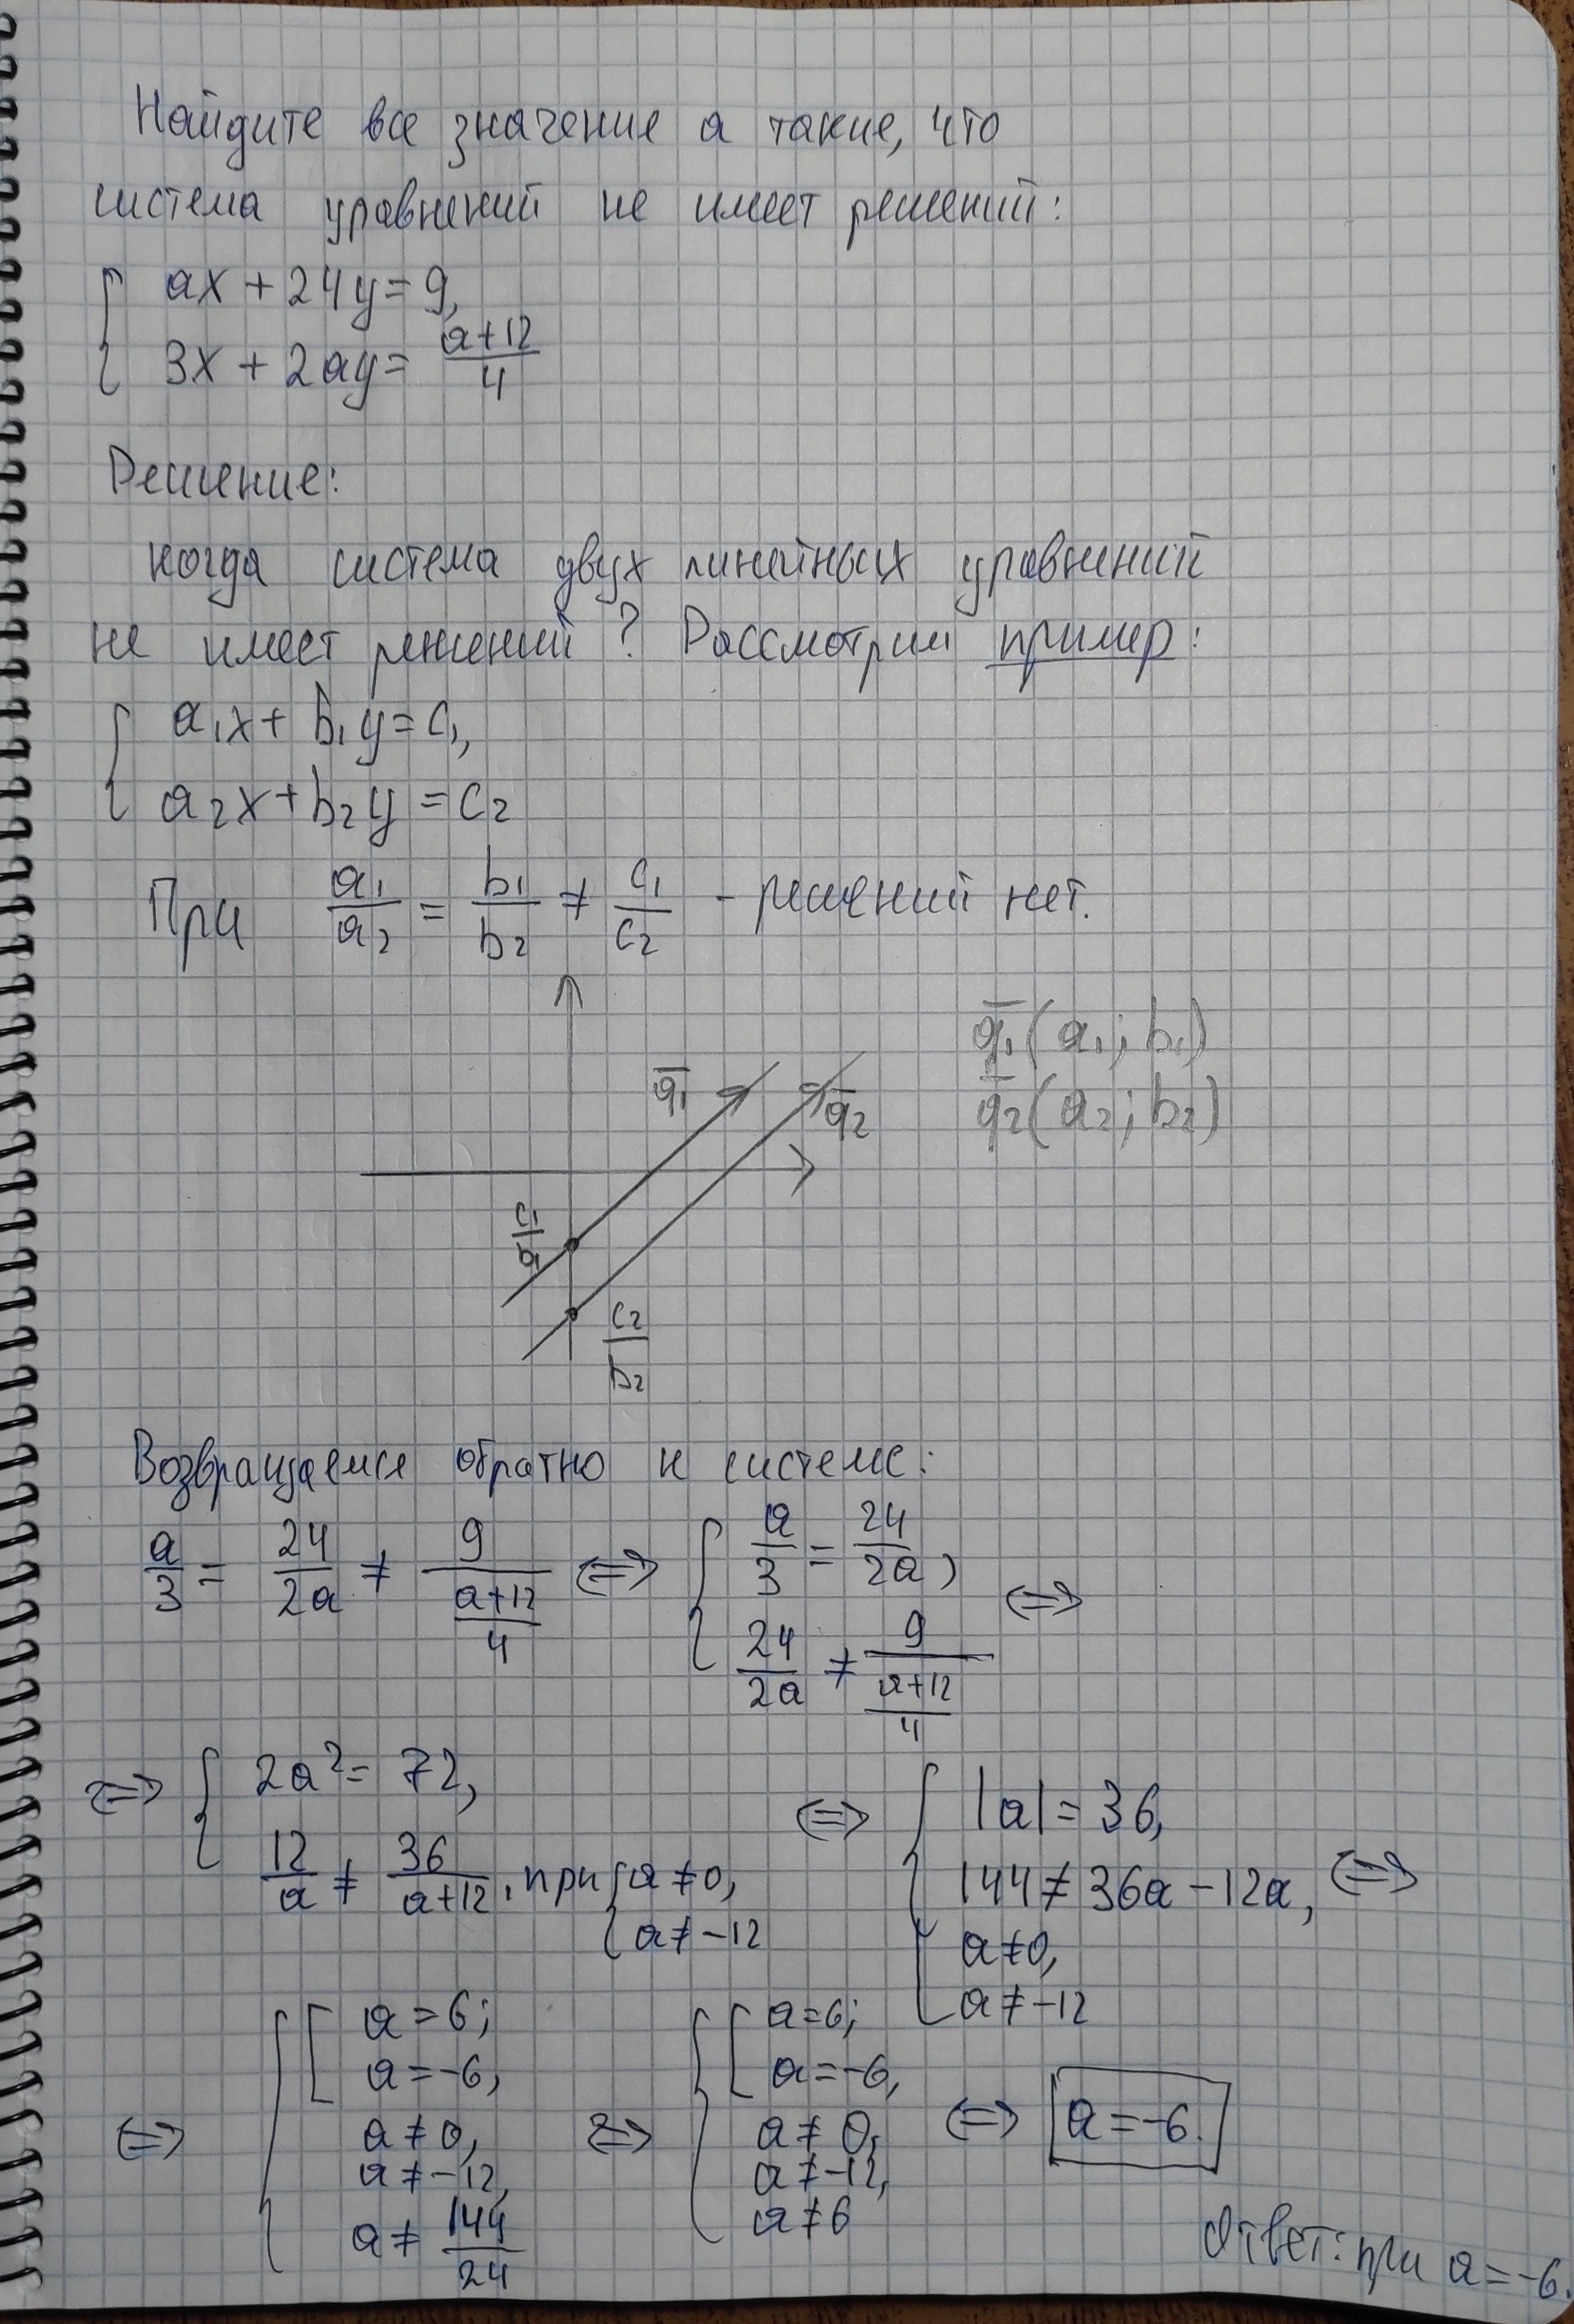 Найдите все значение a такие, что
система уравнений не имеет решений:
{ ax + 24y = 9,
{ 3x + 2ay = (a+12)/4
Решение:
Когда система двух линейных уравнений
не имеет решений? Рассмотрим пример:
{ a₁x + b₁y = c₁,
{ a₂x + b₂y = c₂
При a₁/a₂ = b₁/b₂ ≠ c₁/c₂ - решений нет.
q̅₁(a₁; b₁)
q̅₂(a₂; b₂)
q̅₁ q̅₂
c₁/b₁
c₂/b₂
Возвращаемся обратно к системе:
a/3 = 24/2a ≠ 9/((a+12)/4) <=> { a/3 = 24/2a, 24/2a ≠ 9/((a+12)/4) <=>
<=> { 2a² = 72, 12/a ≠ 36/(a+12), при { a ≠ 0, a ≠ -12 <=> { |a| = 36, 144 ≠ 36a - 12a, a ≠ 0, a ≠ -12 <=>
<=> { [ a = 6; a = -6, a ≠ 0, a ≠ -12, a ≠ 144/24 <=> { [ a = 6; a = -6, a ≠ 0, a ≠ -12, a ≠ 6 <=> a = -6.
Ответ: при a = -6.